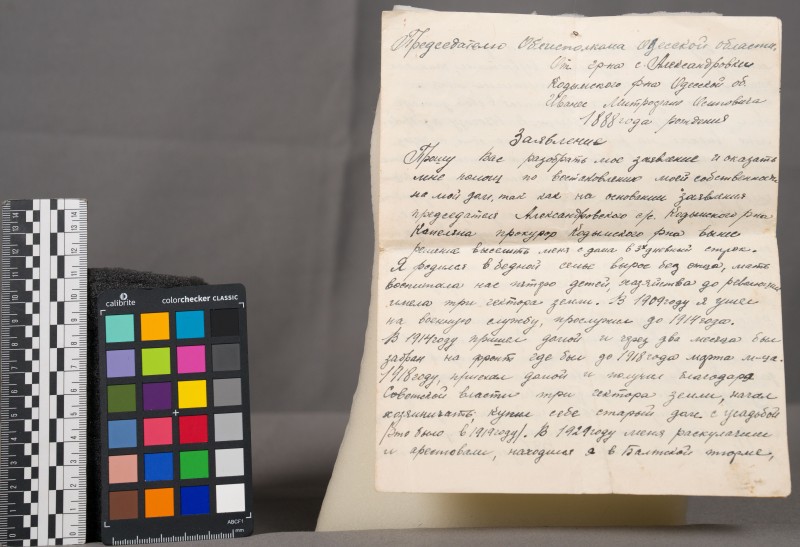 Председателю Облисполкома Одесской области.
От гр-на с Александровки
Кодымского р-на Одесской об.
Митрофана Осиповича
1888 года рождения
Заявление
Прошу Вас разобрать мое заявление и оказать
мне помощ по востановлению моей собственности
на мой дом, так как на основании заявления
председателя Александровского с/с. Кодымского р-на
прокурор Кодымского р-на вынес
решение выселить меня с дома в 3х дневный строк.
Я родился в бедной семье вырос без отца, мать
воспитала нас пятро детей, хазяйства до революции
имела три гектора земли. В 1909 году я ушел
на военную службу, прослужил до 1914 года.
В 1914 году пришел домой и через два месяца был
забран на фронт где был до 1918 года марта м-ца.
1918 году, приехал домой и получил благодаря
Советской власти три гектора земли, начал
хозяиничать купил себе старый дом с усадьбой
/Это было в 1919 году/. В 1929 году меня раскулачили
и арестовали, находился я в Балтской тюрме,
calibrite
colorchecker CLASSIC
ABCF1
mm